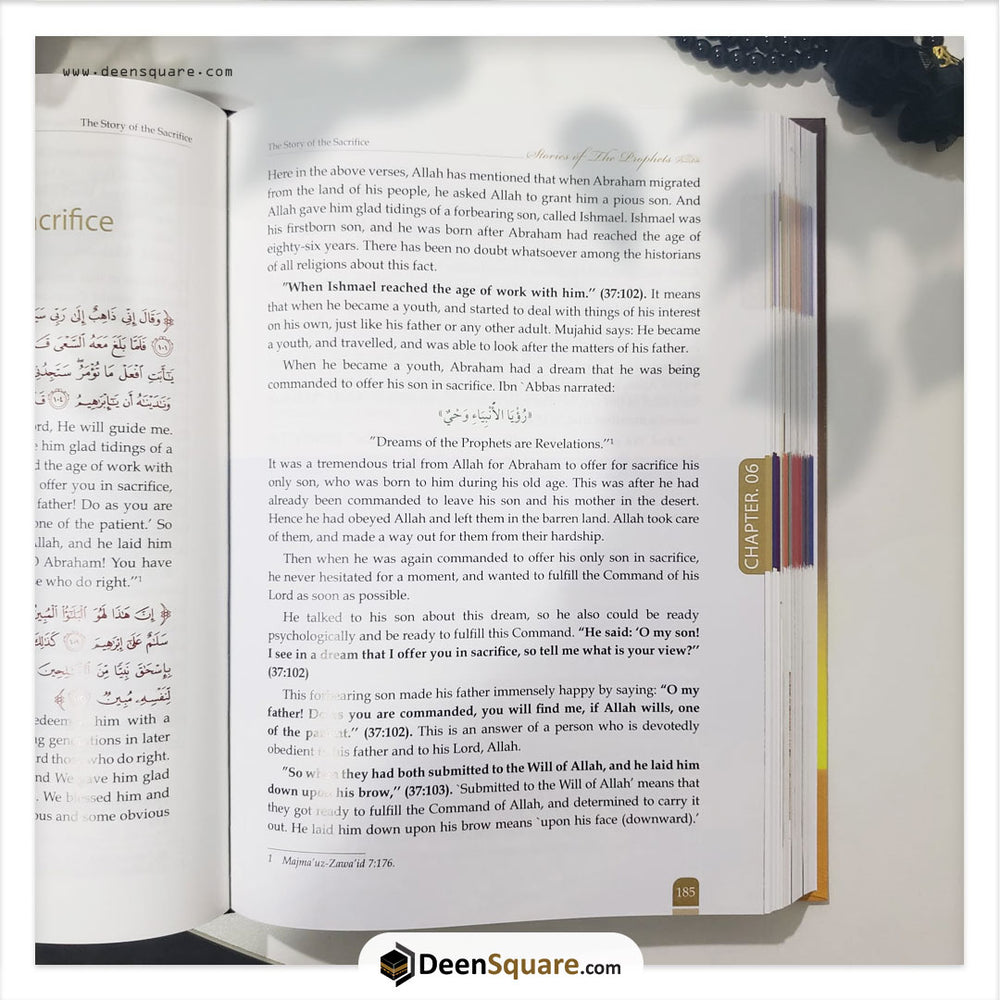 www.deensquare.com
The Story of the Sacrifice
crifice
﴿وَقَالَ إِنِّي ذَاهِبٌ إِلَىٰ رَبِّي
فَلَمَّا بَلَغَ مَعَهُ السَّعْيَ
يَا أَبَتِ افْعَلْ مَا تُؤْمَرُ سَتَجِدُنِي
وَنَادَيْنَاهُ أَن يَا إِبْرَاهِيمُ
rd, He will guide me.
him glad tidings of a
the age of work with
offer you in sacrifice,
father! Do as you are
one of the patient.' So
Allah, and he laid him
Abraham! You have
who do right."1
﴿إِنَّ هَٰذَا لَهُوَ الْبَلَاءُ الْمُبِينُ
سَلَامٌ عَلَىٰ إِبْرَاهِيمَ
بِإِسْحَاقَ نَبِيًّا مِّنَ
لِّنَفْسِهِ مُبِينٌ
him with a
in later
who do right.
nd We gave him glad
. We blessed him and
ous and some obvious
The Story of the Sacrifice
Stories of The Prophets
Here in the above verses, Allah has mentioned that when Abraham migrated
from the land of his people, he asked Allah to grant him a pious son. And
Allah gave him glad tidings of a forbearing son, called Ishmael. Ishmael was
his firstborn son, and he was born after Abraham had reached the age of
eighty-six years. There has been no doubt whatsoever among the historians
of all religions about this fact.
"When Ishmael reached the age of work with him." (37:102). It means
that when he became a youth, and started to deal with things of his interest
on his own, just like his father or any other adult. Mujahid says: He became
a youth, and travelled, and was able to look after the matters of his father.
When he became a youth, Abraham had a dream that he was being
commanded to offer his son in sacrifice. Ibn `Abbas narrated:
«رُؤْيَا الأَنْبِيَاءِ وَحْيٌ»
"Dreams of the Prophets are Revelations."1
It was a tremendous trial from Allah for Abraham to offer for sacrifice his
only son, who was born to him during his old age. This was after he had
already been commanded to leave his son and his mother in the desert.
Hence he had obeyed Allah and left them in the barren land. Allah took care
of them, and made a way out for them from their hardship.
Then when he was again commanded to offer his only son in sacrifice,
he never hesitated for a moment, and wanted to fulfill the Command of his
Lord as soon as possible.
He talked to his son about this dream, so he also could be ready
psychologically and be ready to fulfill this Command. "He said: 'O my son!
I see in a dream that I offer you in sacrifice, so tell me what is your view?"
(37:102)
This forbearing son made his father immensely happy by saying: "O my
father! Do as you are commanded, you will find me, if Allah wills, one
of the patient." (37:102). This is an answer of a person who is devotedly
obedient to his father and to his Lord, Allah.
"So when they had both submitted to the Will of Allah, and he laid him
down upon his brow," (37:103). `Submitted to the Will of Allah' means that
they got ready to fulfill the Command of Allah, and determined to carry it
out. He laid him down upon his brow means `upon his face (downward).'
1 Majma'uz-Zawa'id 7:176.
185
CHAPTER. 06
DeenSquare.com